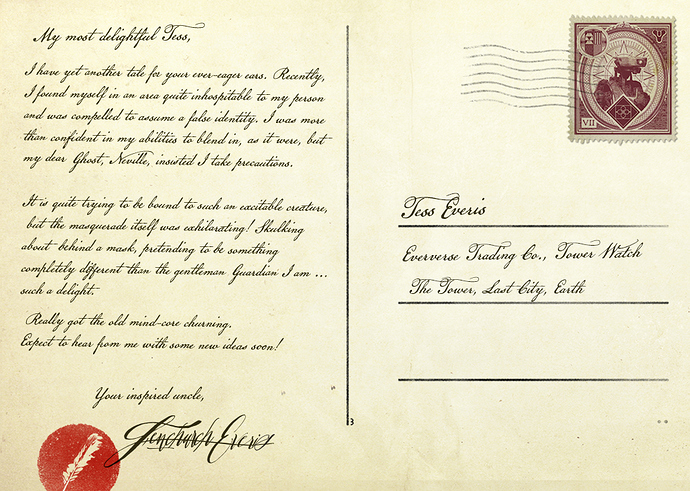 My most delightful Tess,
I have yet another tale for your ever-eager ears. Recently,
I found myself in an area quite inhospitable to my person
and was compelled to assume a false identity. I was more
than confident in my abilities to blend in, as it were, but
my dear Ghost, Neville, insisted I take precautions.
It is quite trying to be bound to such an excitable creature,
but the masquerade itself was exhilarating! Skulking
about behind a mask, pretending to be something
completely different than the gentleman Guardian I am ...
such a delight.
Really got the old mind-core churning.
Expect to hear from me with some new ideas soon!
Your inspired uncle,
Fenchurch Everis
VII
Tess Everis
Eververse Trading Co., Tower Watch
The Tower, Last City, Earth